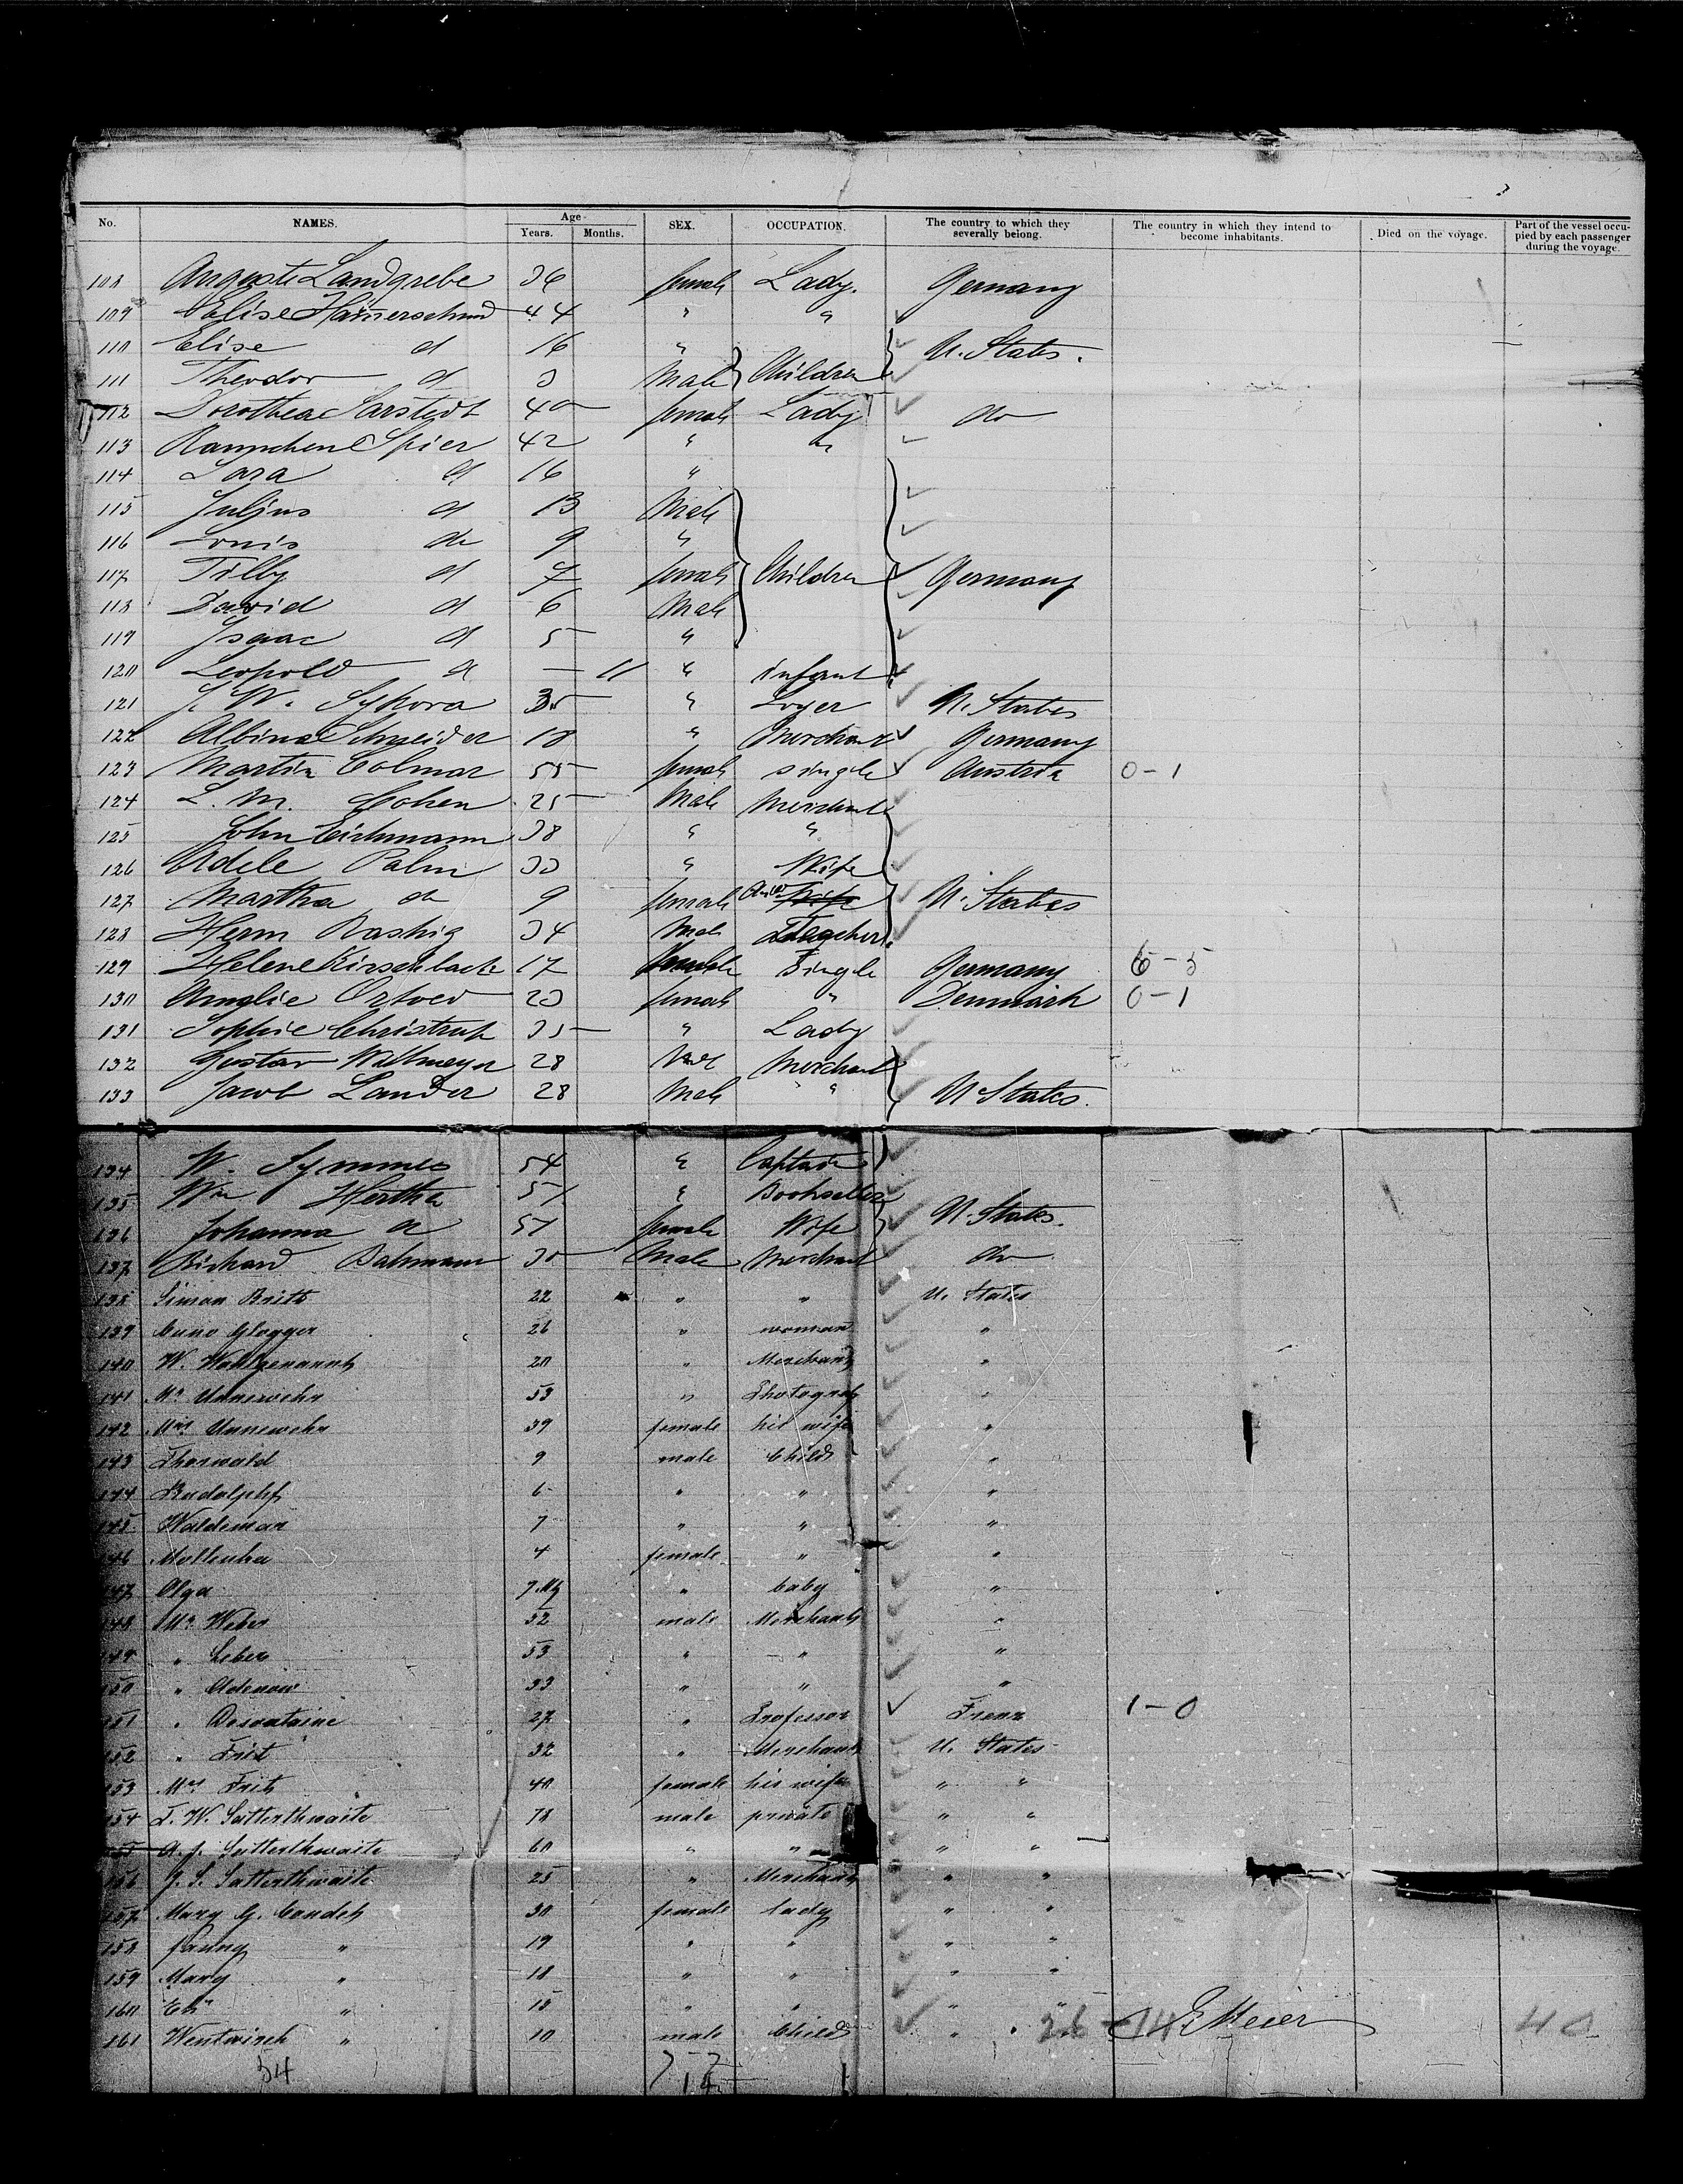 No. NAMES. Age Years. Months. SEX. OCCUPATION. The country to which they severally belong. The country in which they intend to become inhabitants. Died on the voyage. Part of the vessel occupied by each passenger during the voyage.
108 Auguste Landgrebe 36 female Lady. Germany
109 Elise Hamerschmid 44 " "
110 Elise d 16 " U. States.
111 Theodor d 3 Male Children
112 Dorothea Sarstedt 40 female Lady do
113 Rannchen Spier 42 " "
114 Sara d 16 "
115 Julius d 13 Male
116 Louis do 9 "
117 Tilly d 7 female Children Germany
118 David d 6 Male
119 Isaac d 5 "
120 Leopold d — 11 " infant
121 J. W. Sykora 35 " U. States
122 Albina Schneider 18 " Merchant Germany
123 Martin Colmar 55 female single Austria 0-1
124 L. M. Cohen 25 Male Merchant
125 John Eichmann 38 " "
126 Adele Palm 33 " Wife
127 Martha do 9 female Child U. States
128 Herm Rashig 34 Male Teacher
129 Helene Kirschlack 17 female Single Germany 6-5
130 Amalie 23 female " Denmark 0-1
131 Sophie Christrup 35 " Lady
132 Gustav Willmeyer 28 Male Merchant
133 Jacob Lander 28 Male " U States.
134 W. Symmes 54 " Captain
135 Wm Hertha 51 " Bookseller
136 Johanna d 51 female Wife U. States.
137 Richard Bahmann 35 Male Merchant do
138 Simon Britt 22 " " U. States
139 Cuno Glogger 26 " woman "
140 W. 20 " Merchant "
141 Mr Unnewehr 53 " Photograph "
142 Mrs Unnewehr 39 female his wife "
143 Thorwald 9 male Child "
144 Rudolph 6 " " "
145 Waldemar 7 " " "
146 4 female " "
147 Olga 7. " baby "
148 Mr Weber 52 male Merchant "
149 " Leber 53 " " "
150 " Adenaw 33 " " "
151 " 27 " Professor 1-0
152 " Frit 32 " Merchant U. States
153 Mrs Frit 40 female his wife " "
154 T. W. Satterthwaite 78 male private " "
155 A. J. Satterthwaite 60 " " " "
156 J. S. Satterthwaite 25 " Merchant " "
157 Mary G. 30 female lady " "
158 Fanny " 19 " " " "
159 Mary " 18 " " " "
160 " 15 " " " "
161 " 10 male Child " " 26-14 Meier 40
34